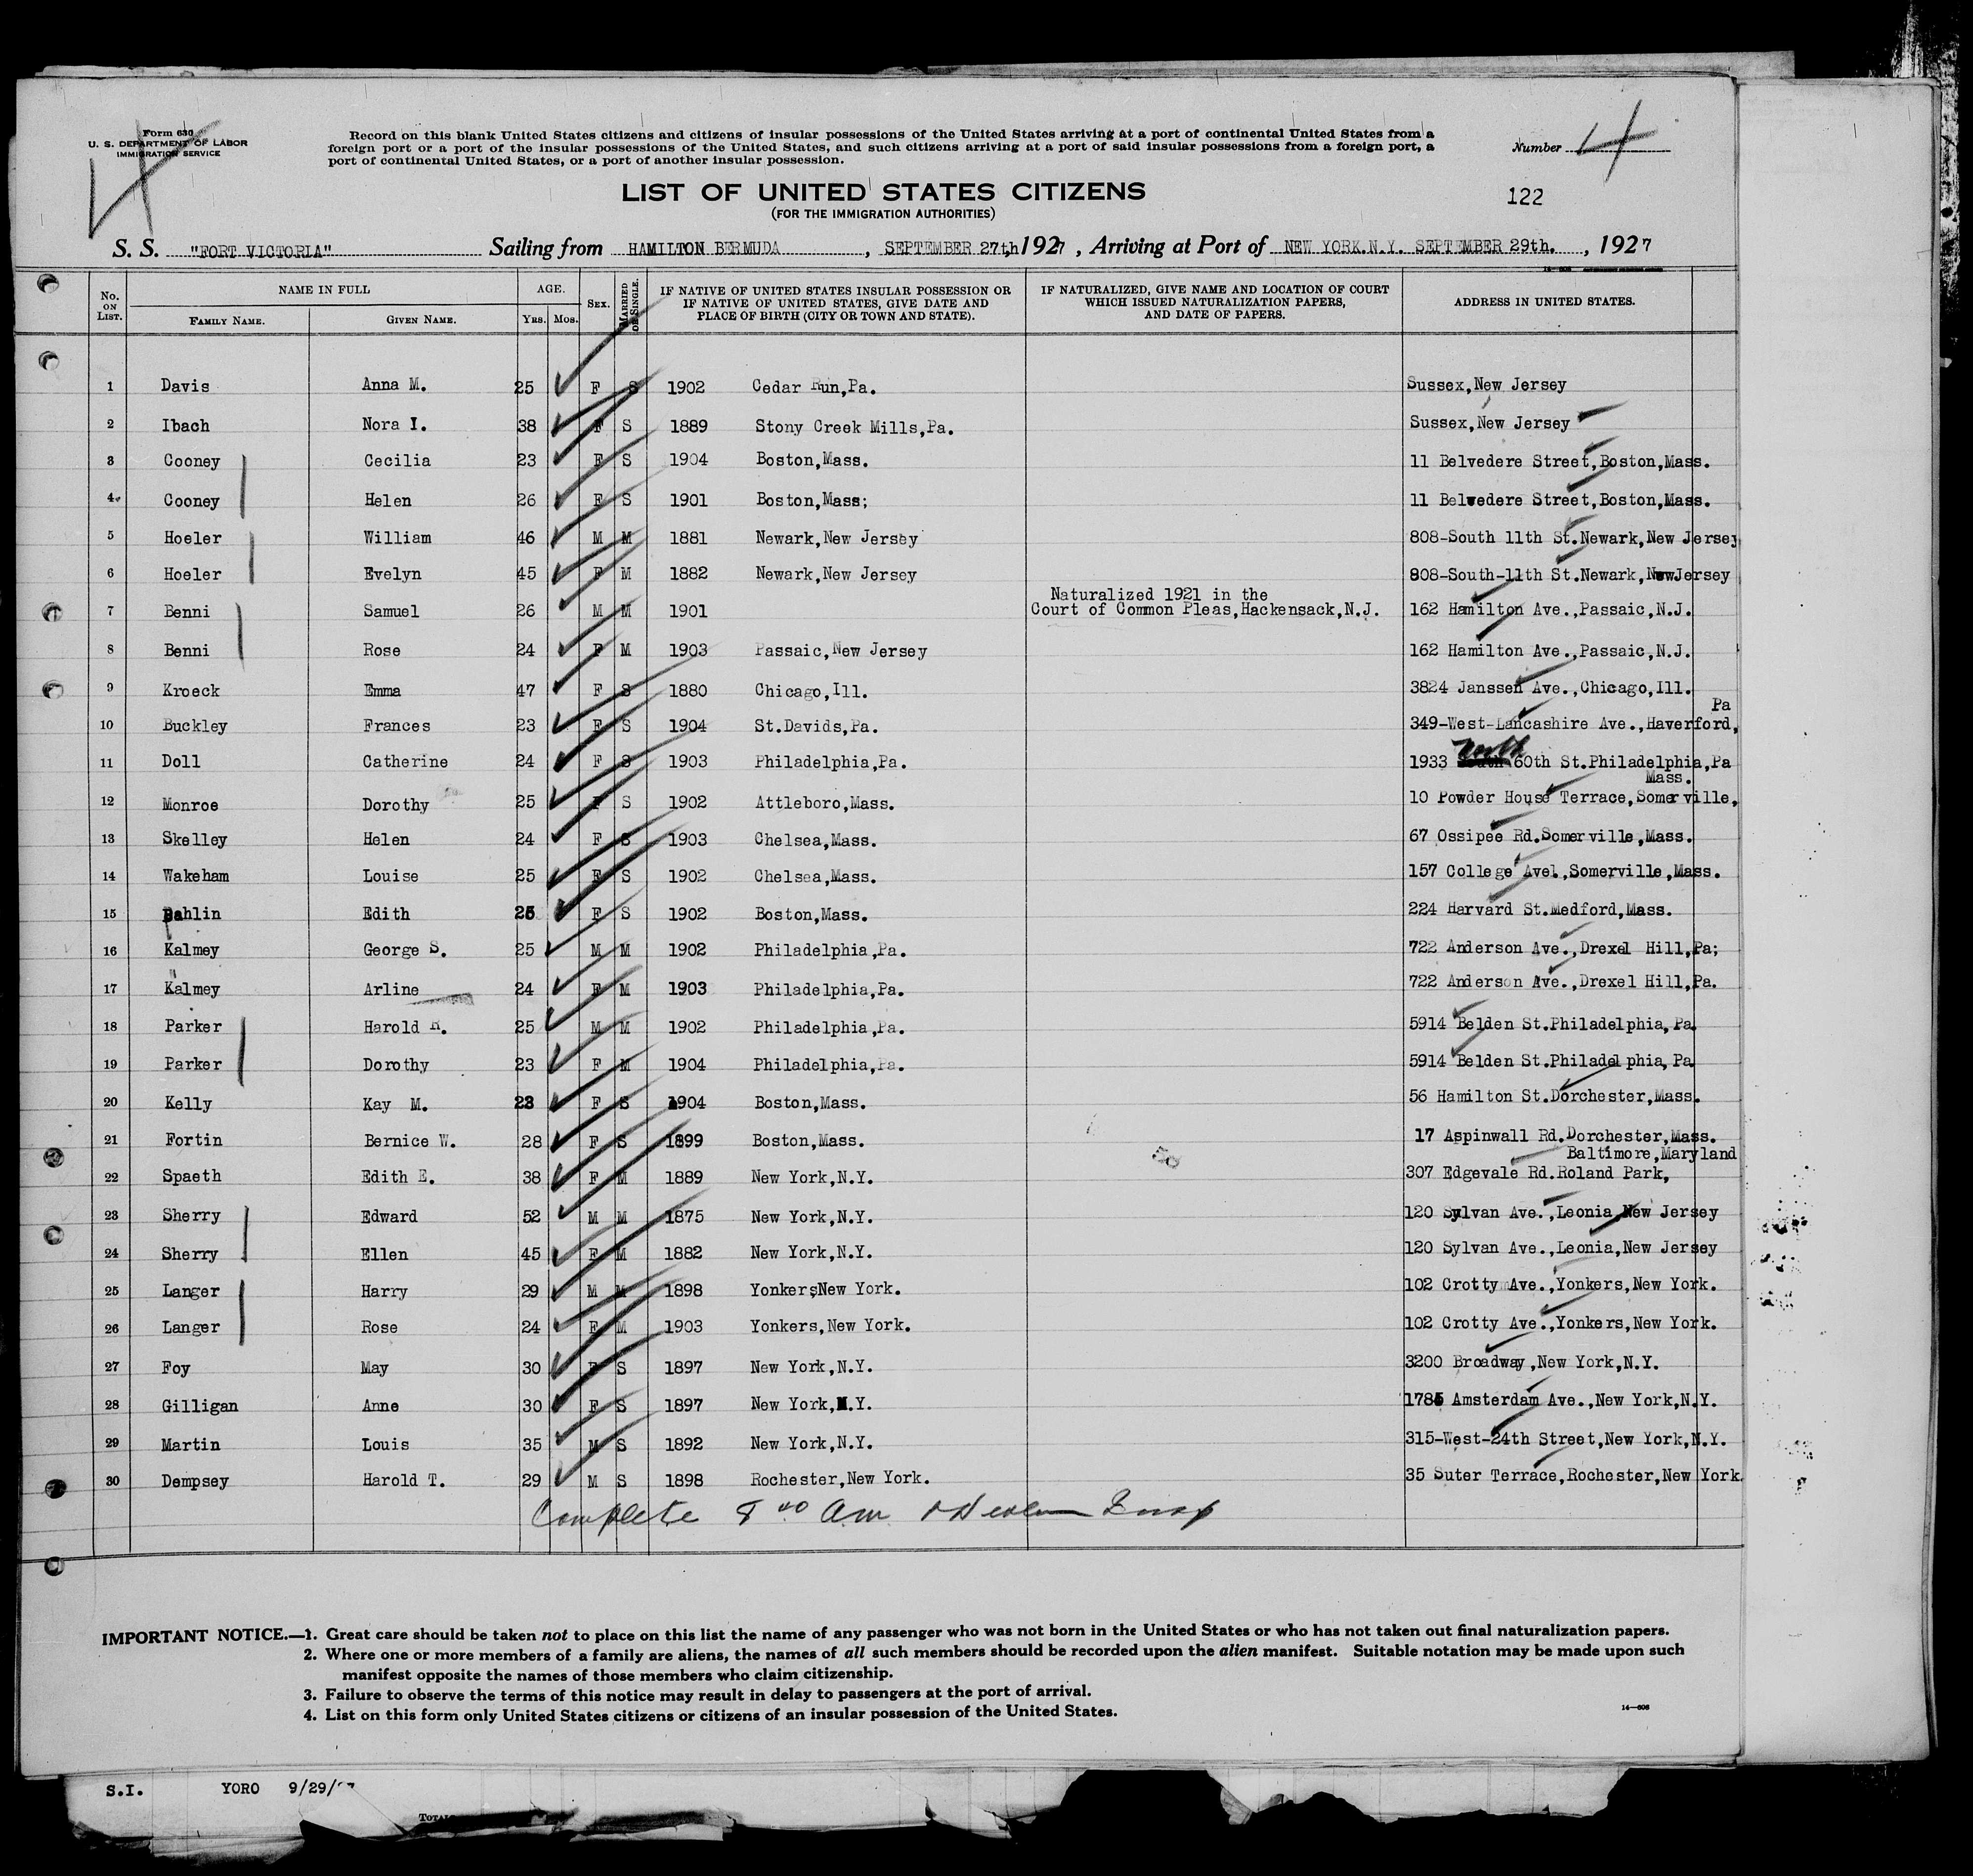 Form 630
U. S. DEPARTMENT OF LABOR
IMMIGRATION SERVICE
4
Record on this blank United States citizens and citizens of insular possessions of the United States arriving at a port of continental United States from a
foreign port or a port of the insular possessions of the United States, and such citizens arriving at a port of said insular possessions from a foreign port, a
port of continental United States, or a port of another insular possession.
Number 4
LIST OF UNITED STATES CITIZENS
(FOR THE IMMIGRATION AUTHORITIES)
122
S. S. "FORT VICTORIA" Sailing from HAMILTON BERMUDA , SEPTEMBER 27th, 1927 , Arriving at Port of NEW YORK.N.Y. SEPTEMBER 29th. , 1927
No. ON LIST. NAME IN FULL FAMILY NAME. GIVEN NAME. AGE. YRS. MOS. SEX. MARRIED OR SINGLE. IF NATIVE OF UNITED STATES INSULAR POSSESSION OR IF NATIVE OF UNITED STATES, GIVE DATE AND PLACE OF BIRTH (CITY OR TOWN AND STATE). IF NATURALIZED, GIVE NAME AND LOCATION OF COURT WHICH ISSUED NATURALIZATION PAPERS, AND DATE OF PAPERS. ADDRESS IN UNITED STATES.
1 Davis Anna M. 25 F S 1902 Cedar Run,Pa. Sussex,New Jersey
2 Ibach Nora I. 38 F S 1889 Stony Creek Mills,Pa. Sussex,New Jersey
3 Cooney Cecilia 23 F S 1904 Boston,Mass. 11 Belvedere Street,Boston,Mass.
4 Cooney Helen 26 F S 1901 Boston,Mass; 11 Belvedere Street,Boston,Mass.
5 Hoeler William 46 M M 1881 Newark,New Jersey 808-South 11th St.Newark,New Jersey
6 Hoeler Evelyn 45 F M 1882 Newark,New Jersey 808-South-11th St.Newark,NewJersey
7 Benni Samuel 26 M M 1901 Naturalized 1921 in the Court of Common Pleas,Hackensack,N.J. 162 Hamilton Ave.,Passaic,N.J.
8 Benni Rose 24 F M 1903 Passaic,New Jersey 162 Hamilton Ave.,Passaic,N.J.
9 Kroeck Emma 47 F S 1880 Chicago,Ill. 3824 Janssen Ave.,Chicago,Ill.
10 Buckley Frances 23 F S 1904 St.Davids,Pa. 349-West-Lancashire Ave.,Haverford, Pa
11 Doll Catherine 24 F S 1903 Philadelphia,Pa. 1933 North 60th St.Philadelphia,Pa
12 Monroe Dorothy 25 F S 1902 Attleboro,Mass. 10 Powder House Terrace,Somerville, Mass.
13 Skelley Helen 24 F S 1903 Chelsea,Mass. 67 Ossipee Rd.Somerville,Mass.
14 Wakeham Louise 25 F S 1902 Chelsea,Mass. 157 College Avel,Somerville,Mass.
15 Pahlin Edith 25 F S 1902 Boston,Mass. 224 Harvard St.Medford,Mass.
16 Kalmey George S. 25 M M 1902 Philadelphia,Pa. 722 Anderson Ave.,Drexel Hill,Pa;
17 Kalmey Arline 24 F M 1903 Philadelphia,Pa. 722 Anderson Ave.,Drexel Hill,Pa.
18 Parker Harold R. 25 M M 1902 Philadelphia,Pa. 5914 Belden St.Philadelphia,Pa.
19 Parker Dorothy 23 F M 1904 Philadelphia,Pa. 5914 Belden St.Philadelphia,Pa
20 Kelly Kay M. 23 F S 1904 Boston,Mass. 56 Hamilton St.Dorchester,Mass.
21 Fortin Bernice W. 28 F S 1899 Boston,Mass. 17 Aspinwall Rd.Dorchester,Mass.
22 Spaeth Edith E. 38 F M 1889 New York,N.Y. 307 Edgevale Rd.Roland Park, Baltimore,Maryland
23 Sherry Edward 52 M M 1875 New York,N.Y. 120 Sylvan Ave.,Leonia,New Jersey
24 Sherry Ellen 45 F M 1882 New York,N.Y. 120 Sylvan Ave.,Leonia,New Jersey
25 Langer Harry 29 M M 1898 Yonkers,New York. 102 Crotty Ave.,Yonkers,New York.
26 Langer Rose 24 F M 1903 Yonkers,New York. 102 Crotty Ave.,Yonkers,New York.
27 Foy May 30 F S 1897 New York,N.Y. 3200 Broadway,New York,N.Y.
28 Gilligan Anne 30 F S 1897 New York,N.Y. 1785 Amsterdam Ave.,New York,N.Y.
29 Martin Louis 35 M S 1892 New York,N.Y. 315-West-24th Street,New York,N.Y.
30 Dempsey Harold T. 29 M S 1898 Rochester,New York. 35 Suter Terrace,Rochester,New York.
Complete 8 00 am Insp
IMPORTANT NOTICE.—1. Great care should be taken not to place on this list the name of any passenger who was not born in the United States or who has not taken out final naturalization papers.
2. Where one or more members of a family are aliens, the names of all such members should be recorded upon the alien manifest. Suitable notation may be made upon such
manifest opposite the names of those members who claim citizenship.
3. Failure to observe the terms of this notice may result in delay to passengers at the port of arrival.
4. List on this form only United States citizens or citizens of an insular possession of the United States.
14—608
S.I. YORO 9/29/